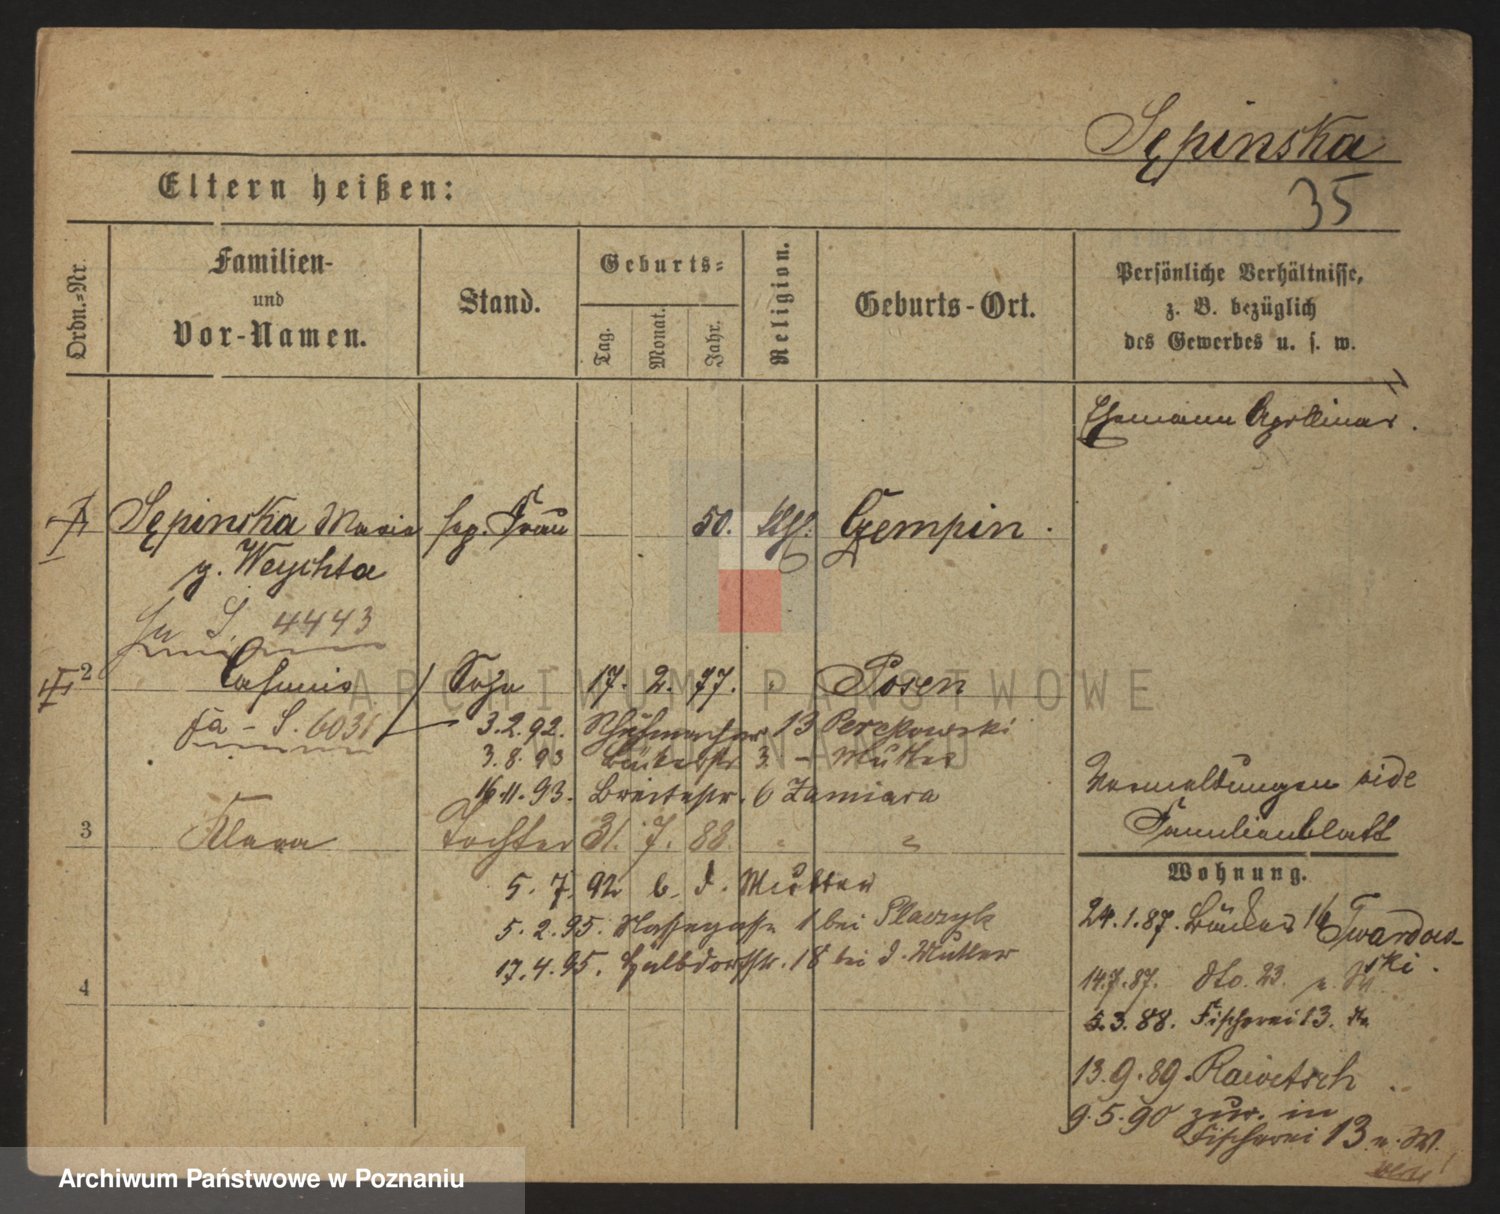 Sępinska
35
Eltern heißen:
Ordn.-Nr.
Familien-
und
Vor-Namen.
Stand.
Geburts-
Tag.
Monat.
Jahr.
Religion.
Geburts-Ort.
Persönliche Verhältnisse,
z. B. bezüglich
des Gewerbes u. s. w.
Ehemann Apollinar.
1 Sępinska Maria sep. Frau 50. Czempin.
g. Weychta
S. 4443
2 Casimir Sohn 17. 2. 77. Posen
S. 6031
3.2.92. Schuhmacherstr 13 Perekowski
3.8.93 Bäckerstr 3 - Mutter
16.11.93. Breitestr. 6 Zamiara
3 Klara Tochter 31. 7. 88. " "
5. 7. 92 b. d. Mutter
5. 2. 95. Nassegasse 1 bei Placzyk
17. 4. 95. Halbdorfstr. 18 bei d. Mutter
4
Vermaltungen vide
Familienblatt
Wohnung.
24.1.87. Bäcker 16 Twardow-
ski.
14.7.87. dto. 23.
5.3.88. Fischerei 13.
13.9.89. Rawitsch
9.5.90 zur. in
Fischerei 13 n. W.
ARCHIWUM PAŃSTWOWE
W POZNANIU
Archiwum Państwowe w Poznaniu